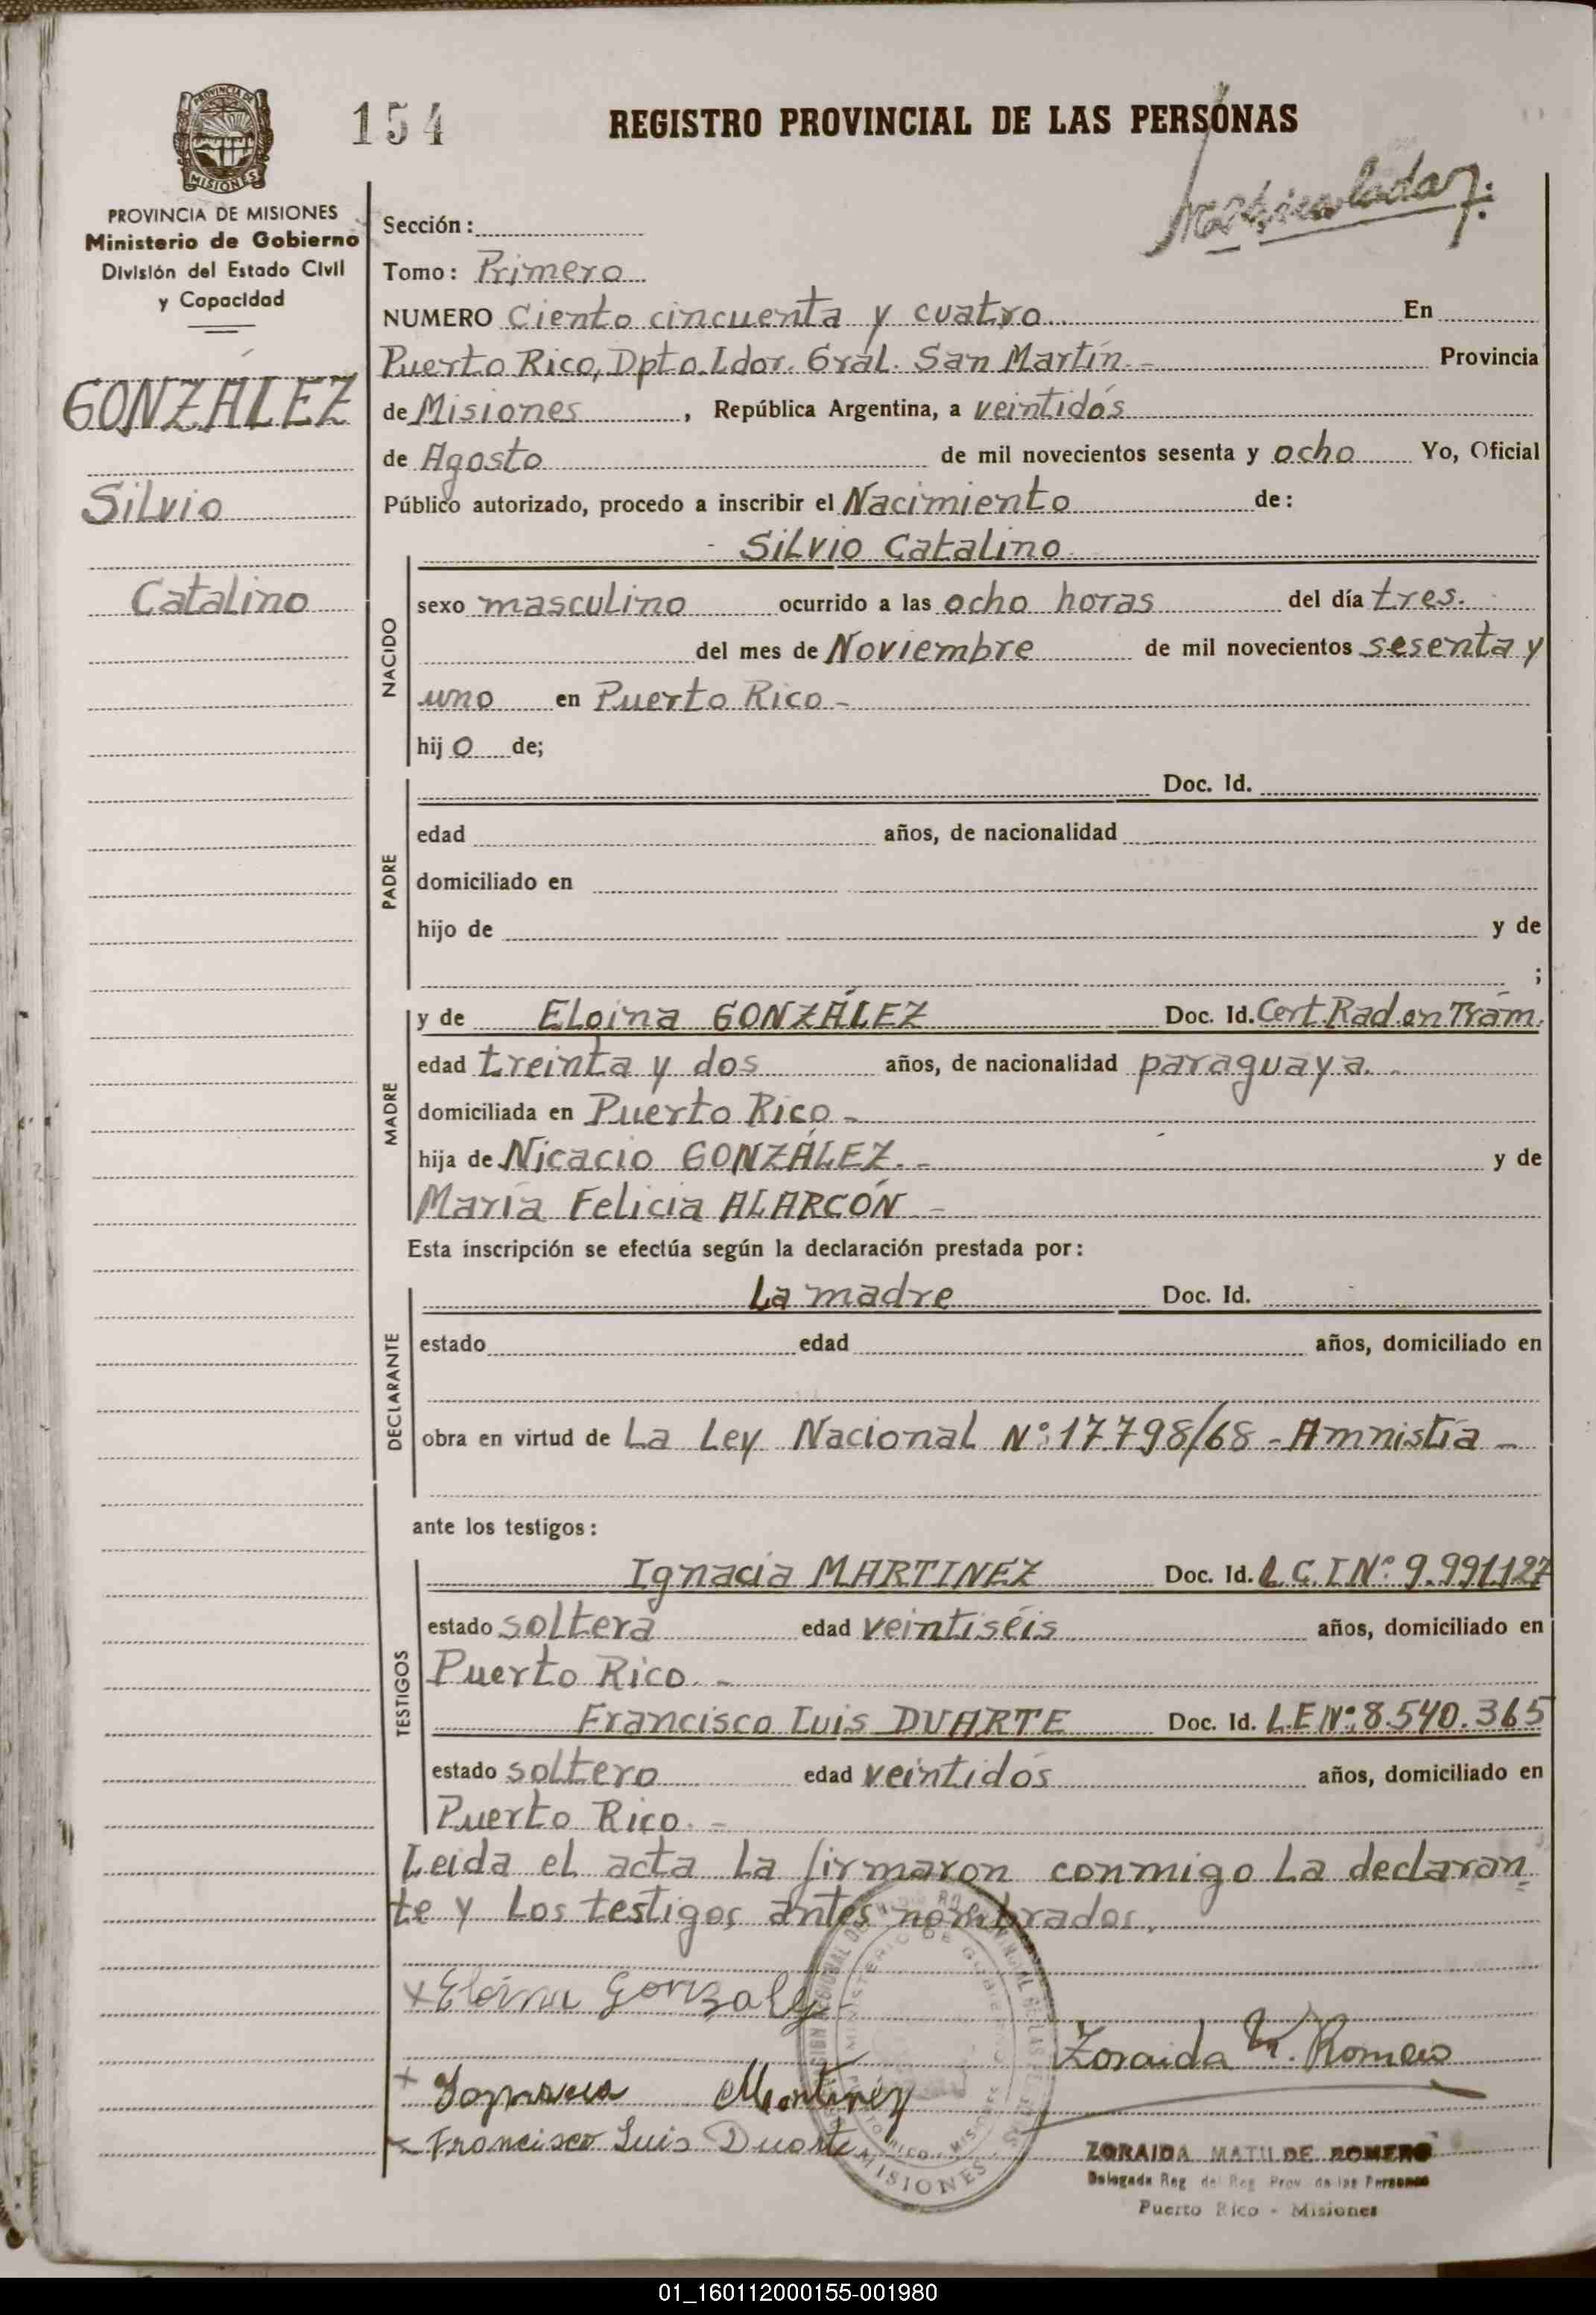 154
REGISTRO PROVINCIAL DE LAS PERSONAS
PROVINCIA DE MISIONES
Ministerio de Gobierno
División del Estado Civil
y Capacidad
GONZÁLEZ
Silvio
Catalino
Sección:
Tomo: Primero
NUMERO Ciento cincuenta y cuatro En
Puerto Rico, Dpto. Ldor. Gral. San Martín.-  Provincia
de Misiones, República Argentina, a veintidós
de Agosto de mil novecientos sesenta y ocho Yo, Oficial
Público autorizado, procedo a inscribir el Nacimiento de:
Silvio Catalino
NACIDO
sexo masculino ocurrido a las ocho horas del día tres.
del mes de Noviembre de mil novecientos sesenta y
uno en Puerto Rico -
hijo de;
PADRE
Doc. Id.
edad años, de nacionalidad
domiciliado en
hijo de y de
;
MADRE
y de Eloina GONZÁLEZ Doc. Id. Cert. Rad. en Trám.
edad treinta y dos años, de nacionalidad paraguaya. -
domiciliada en Puerto Rico -
hija de Nicacio GONZÁLEZ. - y de
María Felicia ALARCÓN -
Esta inscripción se efectúa según la declaración prestada por:
DECLARANTE
La madre Doc. Id.
estado edad años, domiciliado en
obra en virtud de La Ley Nacional Nº: 17.798/68 - Amnistía -
ante los testigos:
TESTIGOS
Ignacia MARTINEZ Doc. Id. L.C. I Nº 9.991.127
estado soltera edad veintiséis años, domiciliado en
Puerto Rico. -
Francisco Luis DUARTE Doc. Id. L.E Nº: 8.540.365
estado soltero edad veintidós años, domiciliado en
Puerto Rico. -
Leida el acta la firmaron conmigo la declaran
te y los testigos antes nombrados.
x Eloina Gonzalez
Zoraida M. Romero
+ Ignacia Martinez
x Francisco Luis Duarte
MINISTERIO DE GOBIERNO
PUERTO RICO - MISIONES
MISIONES
ZORAIDA MATILDE ROMERO
Delegada Reg. del Reg. Prov. de las Personas
Puerto Rico - Misiones
01_160112000155-001980